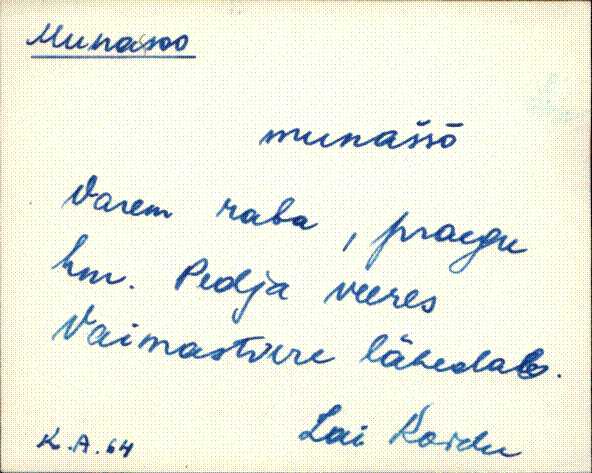 Munasoo
munassō
Varem raba, praegu
hm. Pedja veeres
Vaimastvere lähedal.
Lai Koidu
K.A. 64